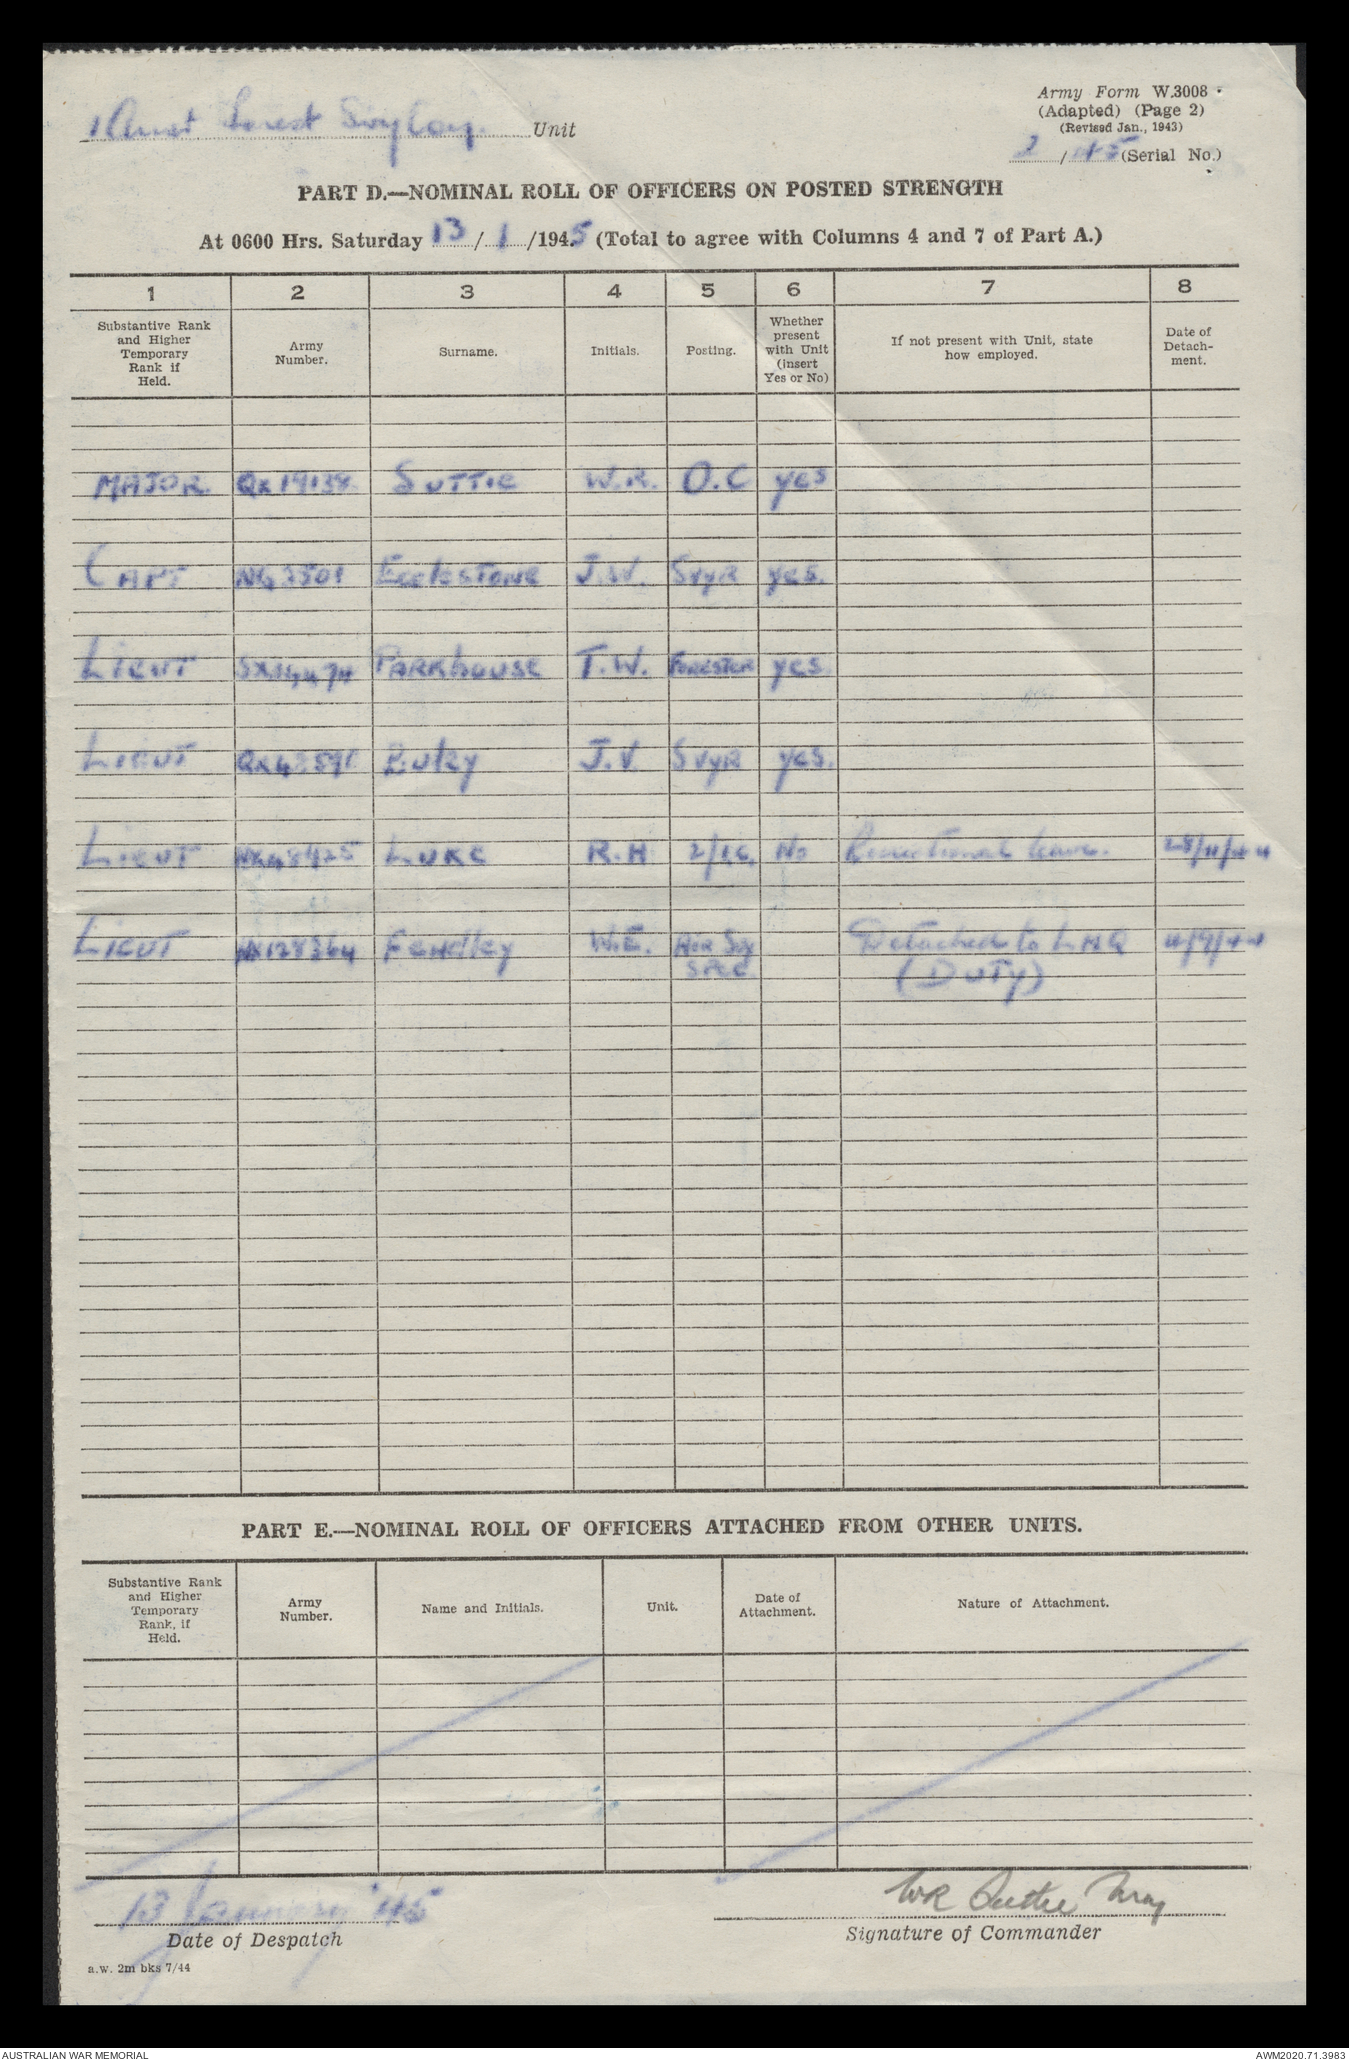 Army Form W.3008
(Adapted) (Page 2)
(Revised Jan., 1943)
1 Aust Forest Svy Coy. Unit
2/45 (Serial No.)
PART D.—NOMINAL ROLL OF OFFICERS ON POSTED STRENGTH
At 0600 Hrs. Saturday 13/1/1945 (Total to agree with Columns 4 and 7 of Part A.)
1 2 3 4 5 6 7 8
Substantive Rank
and Higher
Temporary
Rank if
Held.
Army
Number.
Surname.
Initials.
Posting.
Whether
present
with Unit
(insert
Yes or No)
If not present with Unit, state
how employed.
Date of
Detach-
ment.
MAJOR. SUTTIE W.R. O.C yes
CAPT EccleSTONE J.W. SvyR yes.
LIEUT PARKhOUSE T.W. FORESTER yes.
LIEUT J.V. SvyR yes.
LIEUT LUKE R.H No leave. 28/11/44
LIEUT NX128364 W.E. AIR Svy Detached to LHQ 4/9/44
(DUTy)
PART E.—NOMINAL ROLL OF OFFICERS ATTACHED FROM OTHER UNITS.
Substantive Rank
and Higher
Temporary
Rank, if
Held.
Army
Number.
Name and Initials.
Unit.
Date of
Attachment.
Nature of Attachment.
13 January '45
WR Suttie Maj
Date of Despatch
Signature of Commander
a.w. 2m bks 7/44
AUSTRALIAN WAR MEMORIAL
AWM2020.71.3983